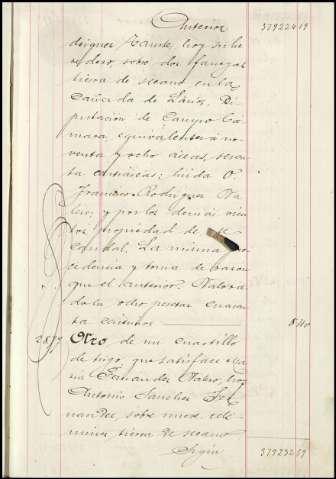 Anterior 37922419
dríguez                , hoy su he
redero, sobre dos fanegas
tierra de secano en la
Cañada de            , Di
putación de Campo Ca
mara, equivalentes á no
venta y ocho áreas, seten
ta centiáreas; linda O.
Francisco Rodríguez Va
lero; y por los demás vien
tos propiedad de
caudal. La misma pro
cedencia y toma de razón
que el anterior. Valora
do la ocho pesetas cuaren
ta céntimos 8'40
Otro de un cuartillo
de trigo, que satisface
Fernández Valero, hoy
Antonio Sánchez Fer
nández, sobre nueve cele
mines tierra de secano
Sigue 37923259